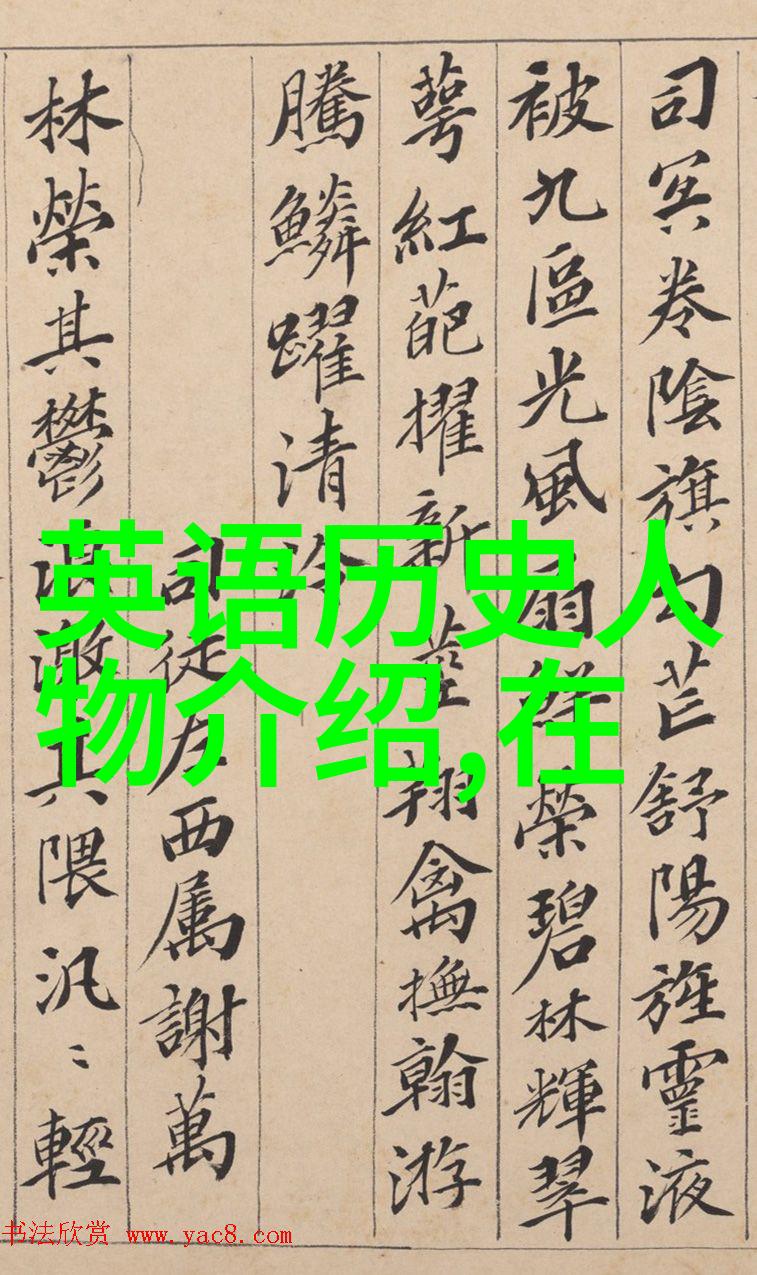 司冥卷陰旗勾芒舒陽旌靈液
被九區光風扇鮮榮碧林輝翠
萼紅葩擢新莖翔禽撫翰游
騰鱗躍清泠
司徒左西属謝萬
林榮其鬱浪激其隈汎〻輕
英语历史人
物介绍,在
书法欣赏 www.yac8.com